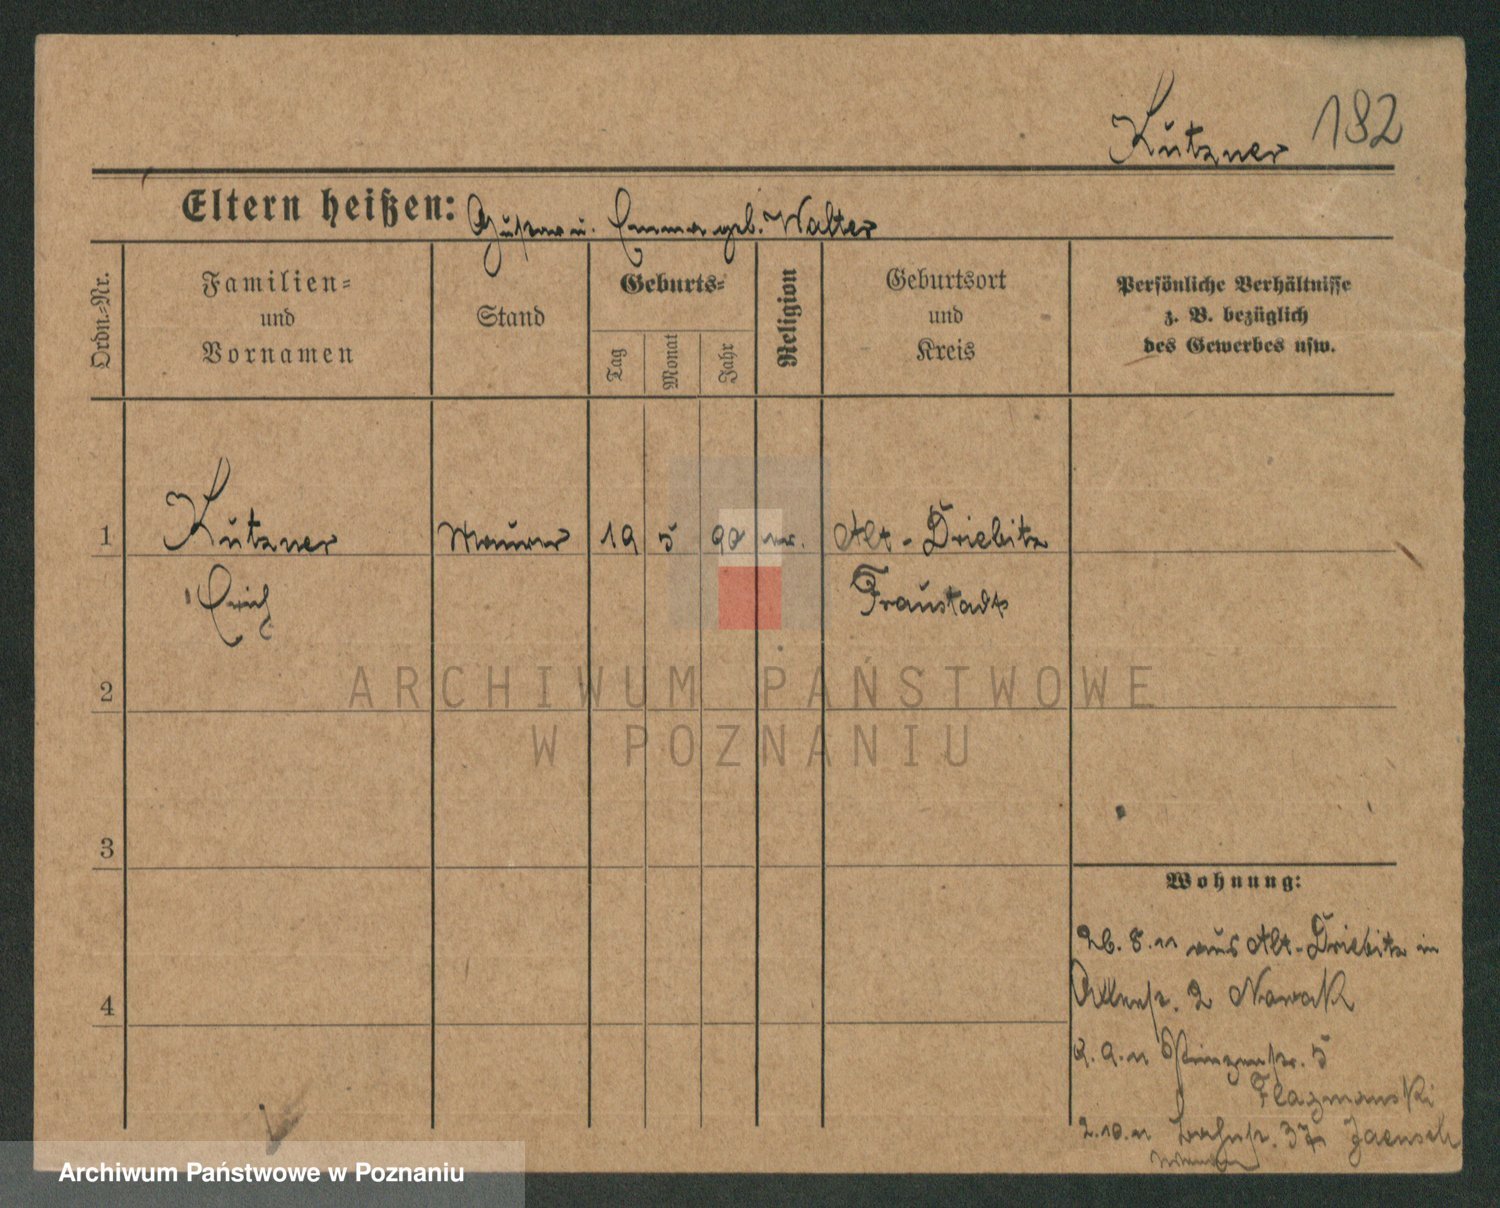 Kutzner 182
Eltern heißen: Gustav u. Emma geb. Walter
Ordn.-Nr.
Familien-
und
Vornamen
Stand
Geburts-
Tag
Monat
Jahr
Religion
Geburtsort
und
Kreis
Persönliche Verhältnisse
z. B. bezüglich
des Gewerbes usw.
1 Kutzner Maurer 19 5 90 ev. Alt-Driebitz
Erich Fraustadt
2
ARCHIWUM PAŃSTWOWE
W POZNANIU
3
Wohnung:
26. 8. 11 aus Alt-Driebitz in
2 Nowak
4
2. 9. 11 Prinzenstr. 5
Flazmanski
2. 10. 11 37a Jaensch
Archiwum Państwowe w Poznaniu